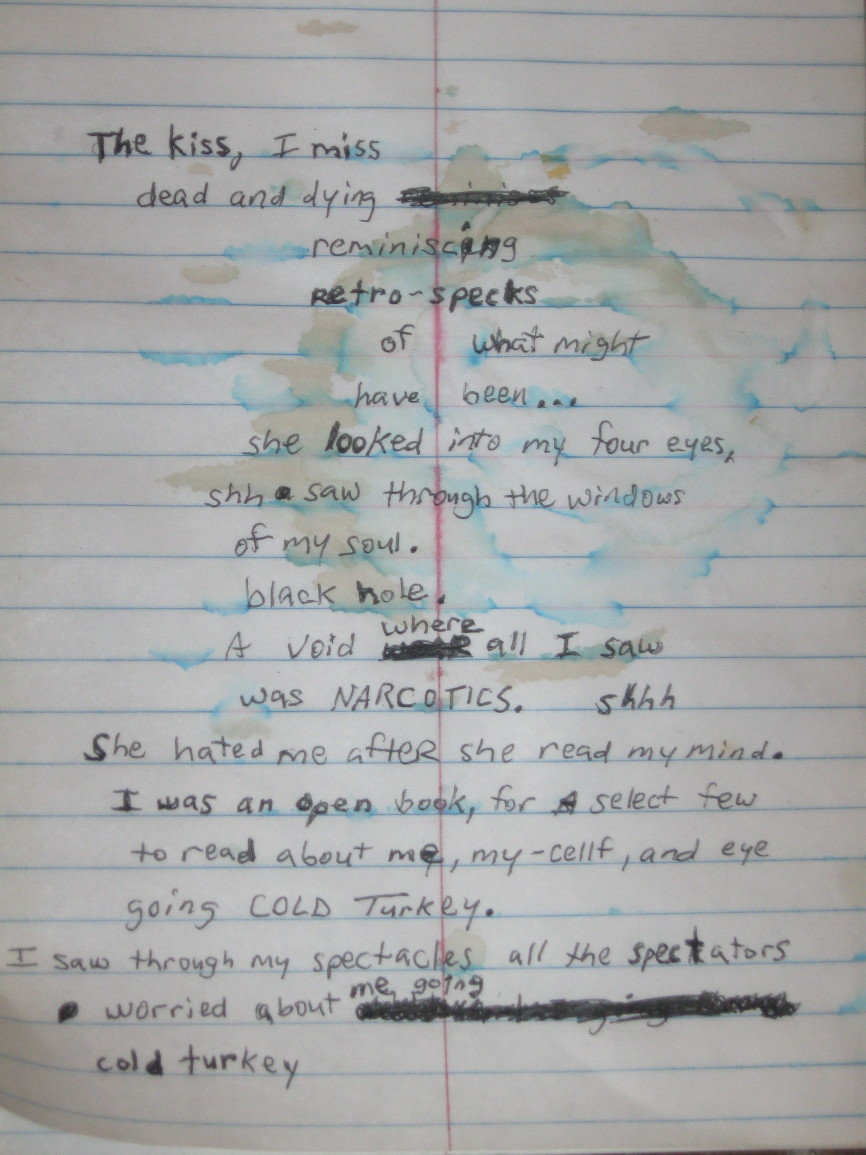 The kiss, I miss
dead and dying
reminiscing
Retro-specks
of what might
have been...
she looked into my four eyes,
shh saw through the windows
of my soul.
black hole.
where
A void all I saw
was NARCOTICS. shhh
She hated me after she read my mind.
I was an open book, for A select few
to read about me, my-cellf, and eye
going COLD Turkey.
I saw through my spectacles all the spectators
me going
worried about
cold turkey